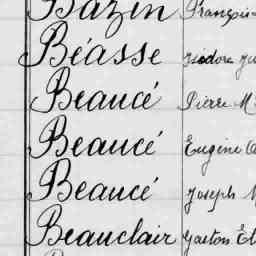 Bazin François
Béasse Isidore
Beaucé Pierre M
Beaucé Eugène
Beaucé Joseph
Beauclair Gaston